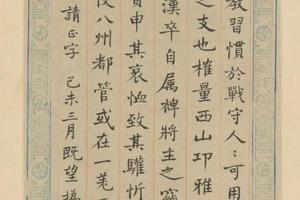 教習慣於戰守人人可用
之支也榷量西山邛雅
漢卒自属裨將主之竊
賁申其哀恤致其驩忻
八州都管或在一羌
請正字 己未三月既望